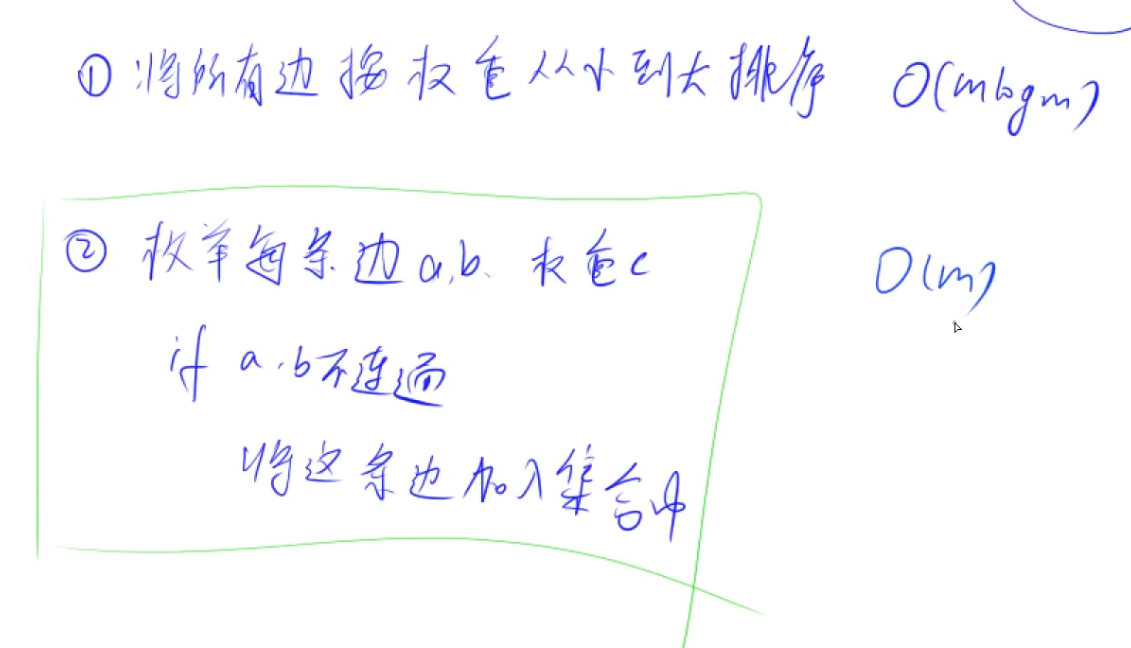 ① 将所有边按权重从小到大排序 O(mlogm)
② 枚举每条边a,b、权重c O(m)
if a,b不连通
将这条边加入集合中